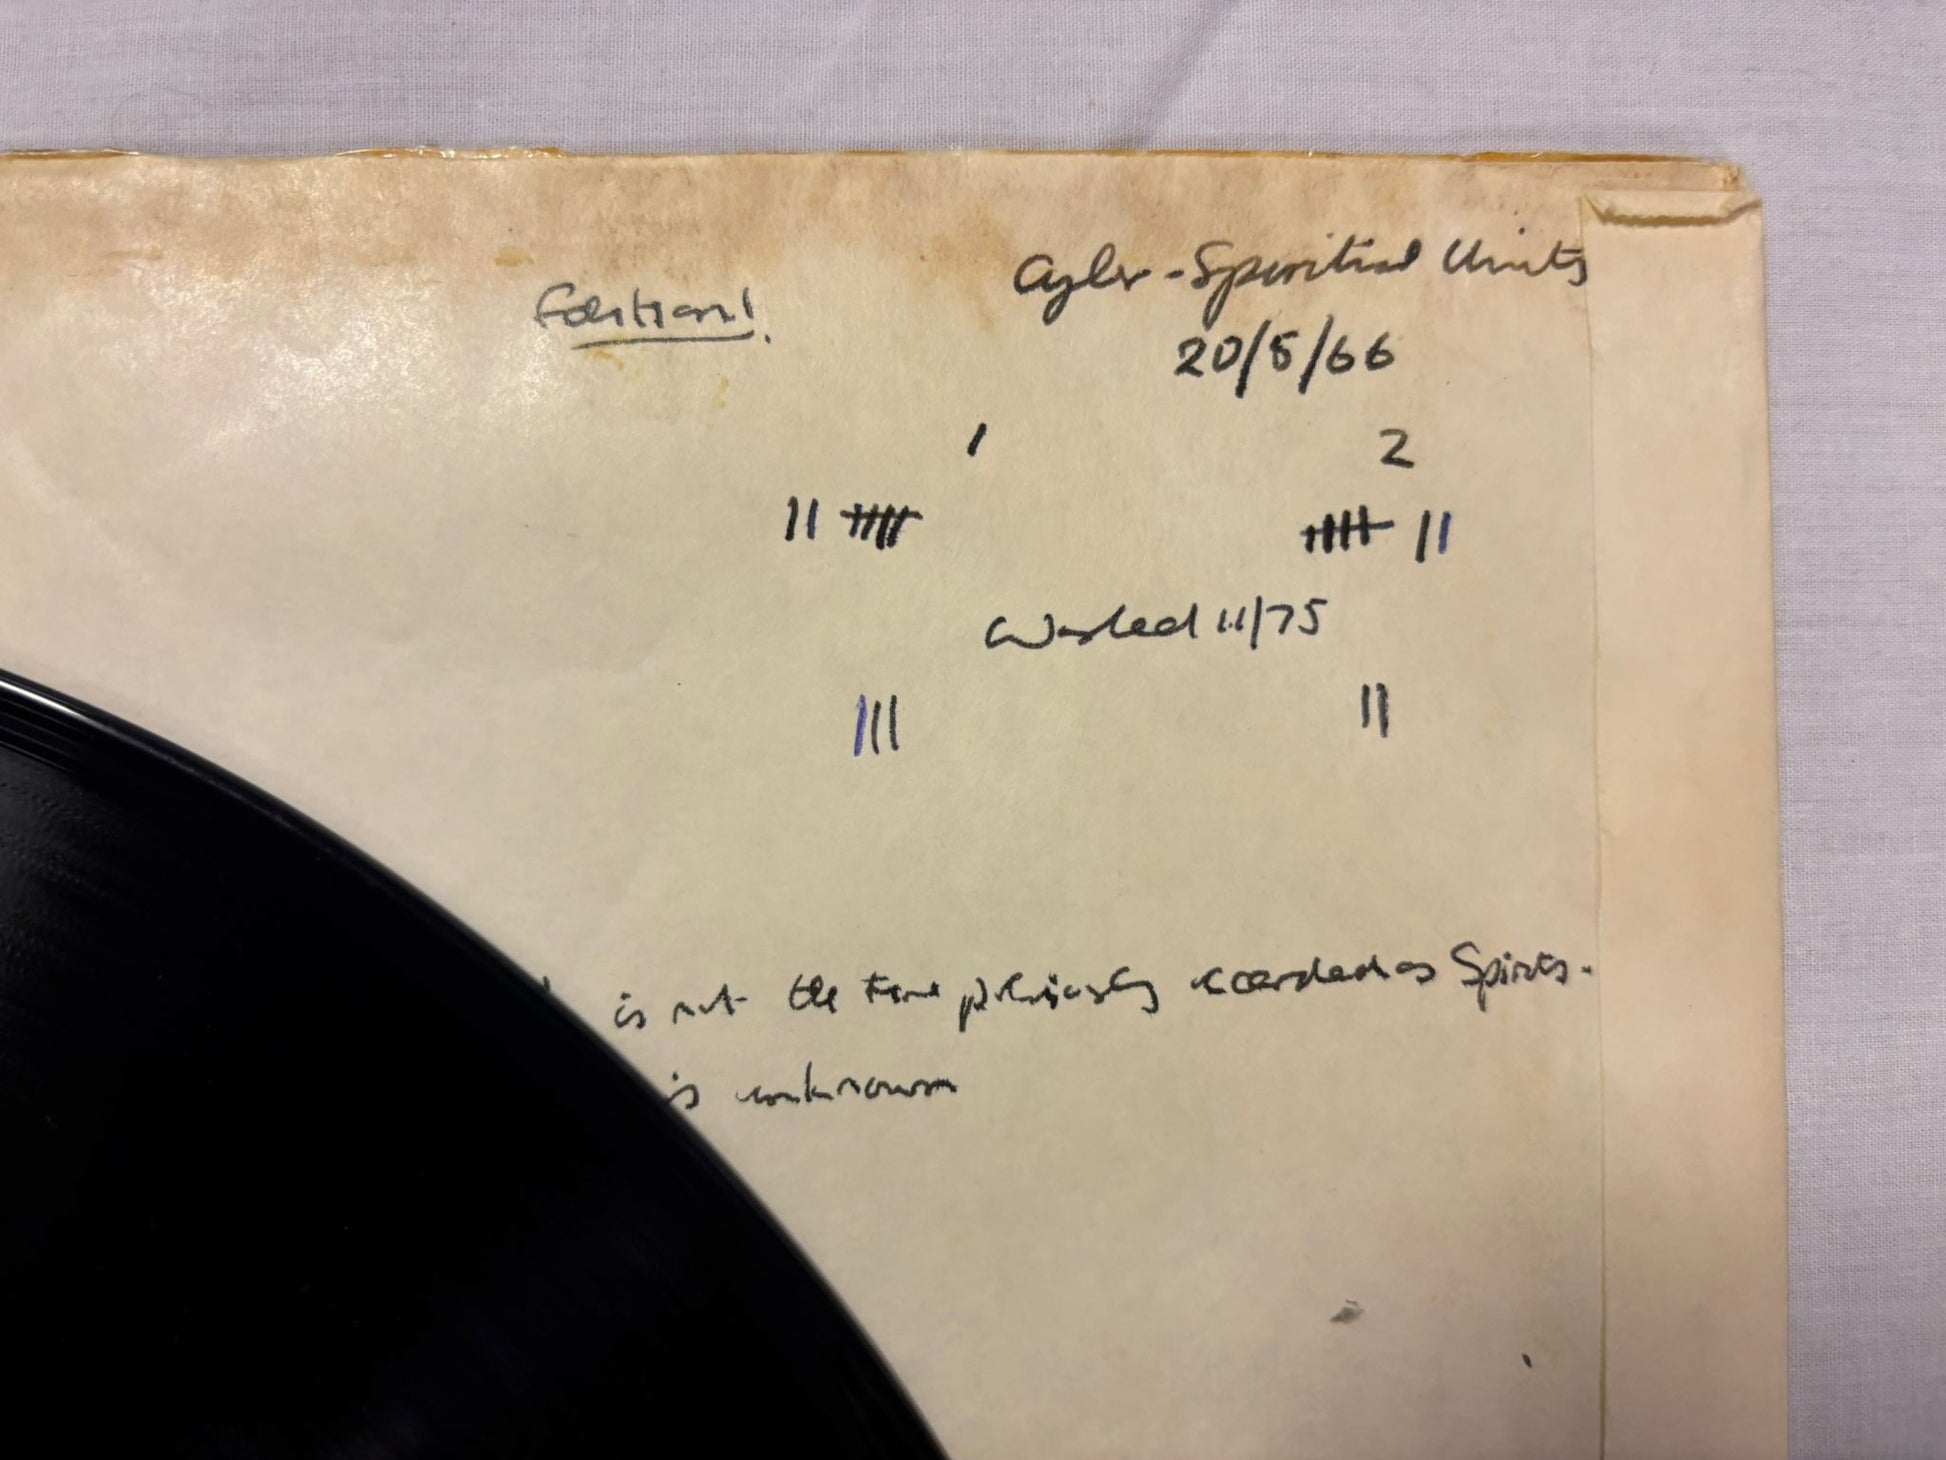 Ayler - Spiritual Unity
20/5/66
1 2
Washed 11/75
is not the tune previously recorded as Spirits.
is unknown